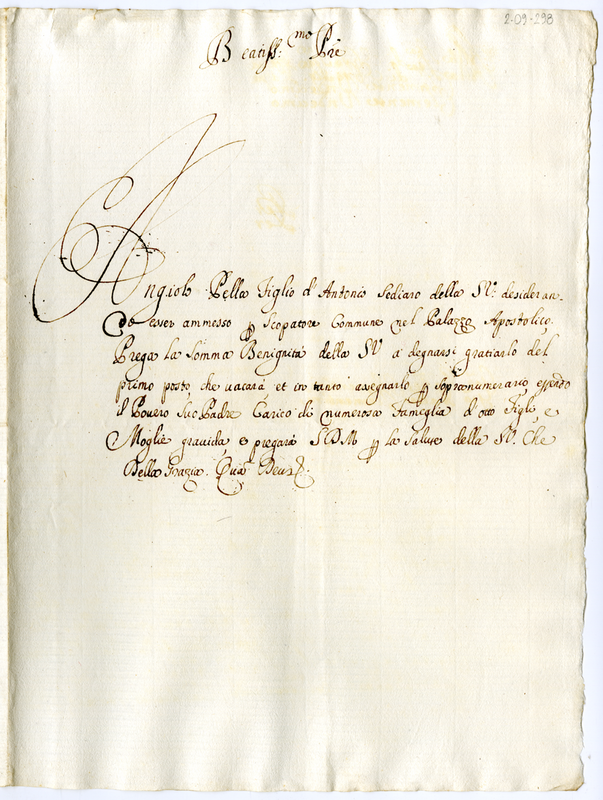 2-09-298
Beatiss.mo Pre
Angiolo Pella Figlio d'Antonio Sediaro della S.V. desideran-
do esser ammesso p Scopatore Commune nel Palazzo Apostolico.
Prega la Somma Benignità della S.V. a degnarsi gratiarlo del
primo posto che vacarà et in tanto assegnarlo p sopranumerario, essendo
il Povero suo Padre Carico di numerosa Fameglia d'otto Figli, e
Moglie gravida e pregarà S.D.M. p la Salute della S.V. Che
Della Grazia. Quã Deus &.